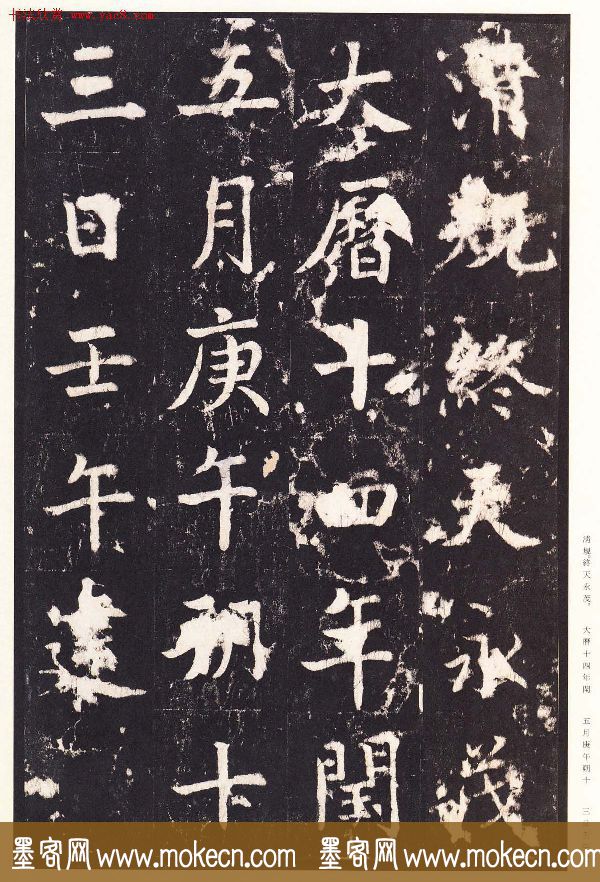 清規終天永茂
大曆十四年閏
五月庚午朔十
三日壬午建
清規終天永茂。 大曆十四年閏 五月庚午朔十 三
www.yac8.com
墨客网 www.mokecn.com 墨客网 www.mokecn.com